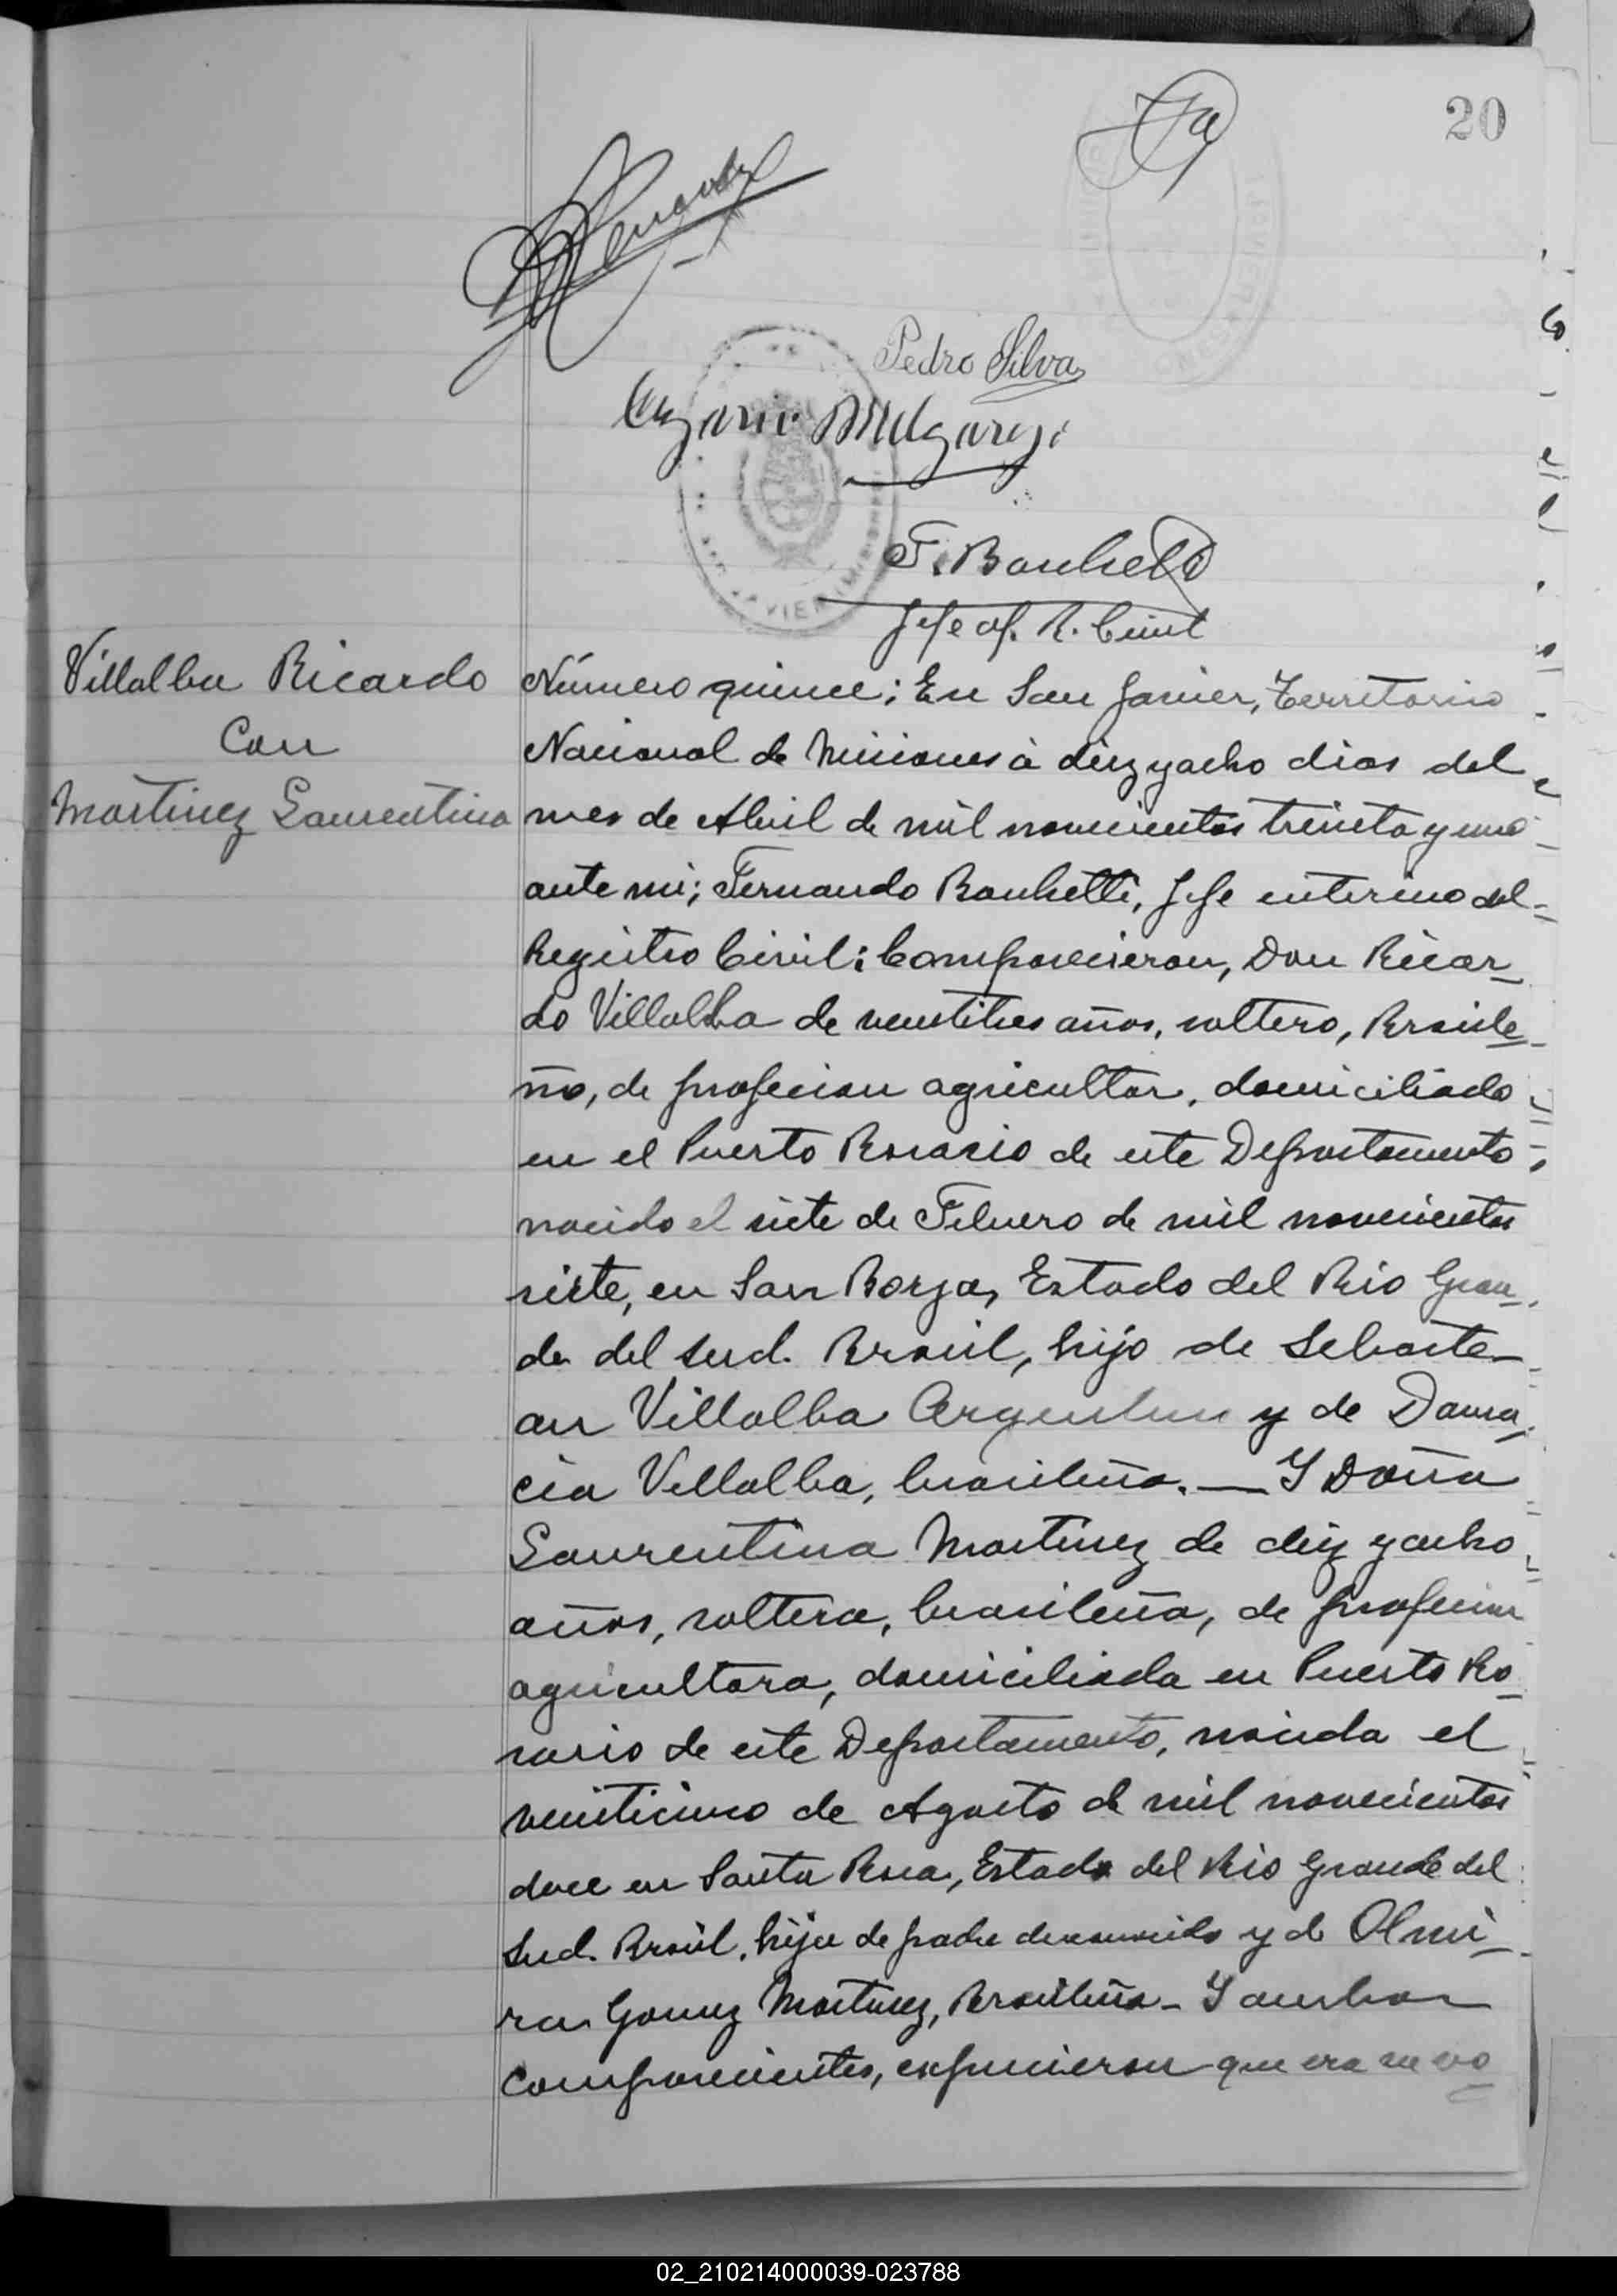 20
Pedro Silva
T. Banhetti
Jefe of. R. Civil
Villalba Ricardo
Con
Martinez Laurentina
Número quince; En San Javier, Territorio
Nacional de Misiones à diez y ocho dias del
mes de Abril de mil novecientos treinta y uno
ante mi; Fernando Banhetti, Jefe interino del
Registro Civil: Comparecieron, Don Ricar-
do Villalba de veintitres años, soltero, Brasile-
ño, de profecion agricultor, domiciliado
en el Puerto Rosario de este Departamento
nacido el siete de Febrero de mil novecientos
siete, en San Borja, Estado del Rio Gran-
de del Sud. Brasil, hijo de Sebaste-
an Villalba Argentino y de Dama-
cia Villalba, brasileña. — Y Doña
Laurentina Martinez de diez y ocho
años, soltera, brasileña, de profecion
agricultora, domiciliada en Puerto Ro-
sario de este Departamento, nacida el
veinticinco de Agosto de mil novecientos
doce en Santa Rosa, Estado del Rio Grande del
Sud. Brasil, hija de padre desconocido y de Almi-
ra Gomez Martinez, Brasileña - Y ambos
comparecientes, expucieron que era su vo-
02_210214000039-023788